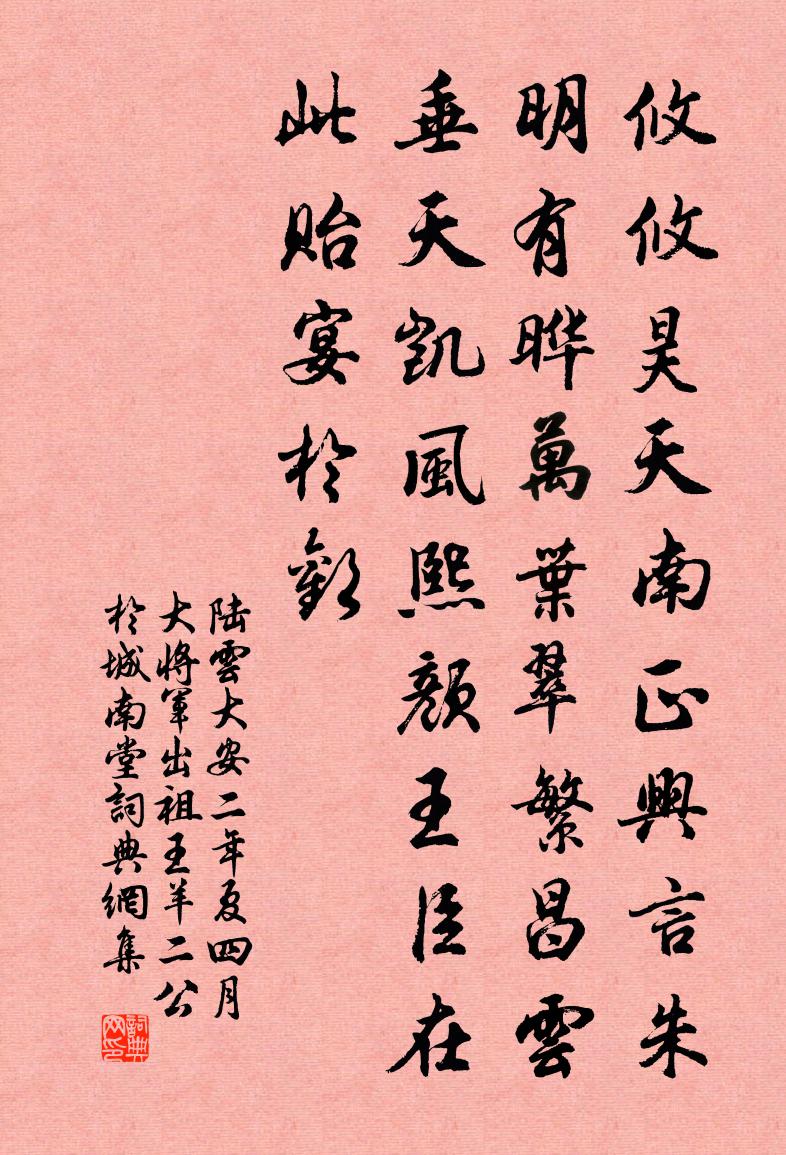 攸攸昊天南正興言朱
明有曄萬葉翠繁昌雲
垂天凱風熙顏王臣在
此貽宴於歡
陸雲大安二年夏四月
大將軍出祖王羊二公
於城南堂詞典網集
詞典
网印